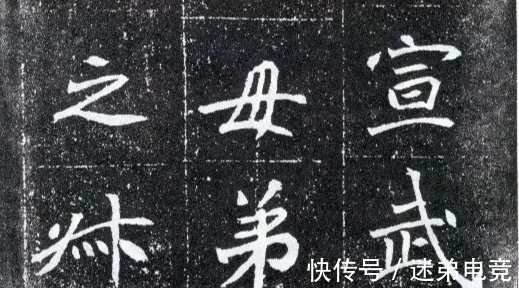 宣武
母弟
之叔
快传号 / 迷弟电竞